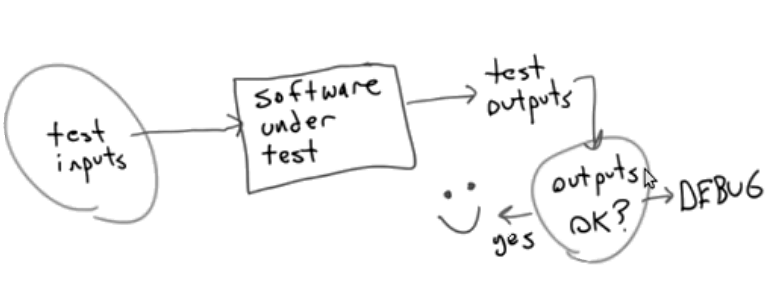 test
inputs
software
under
test
test
outputs
outputs
OK?
yes
DEBUG